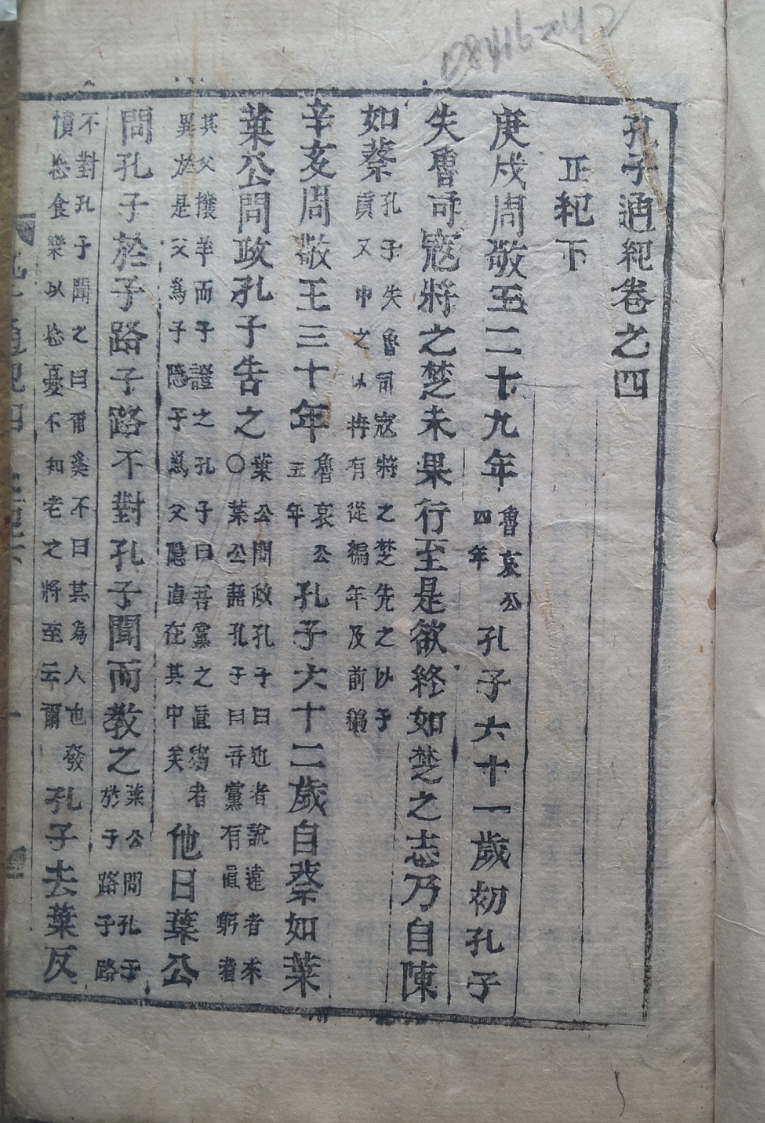 孔子通紀卷之四
正紀下
庚戌周敬王二十九年魯哀公四年孔子六十一歲初孔子
失魯司寇將之楚未果行至是欲終如楚之志乃自陳
如蔡孔子失魯司寇將之楚先之以子貢又申之以冉有從編年及前編
辛亥周敬王三十年魯哀公五年孔子六十二歲自蔡如葉
葉公問政孔子告之〇葉公問政孔子曰近者說遠者來葉公語孔子曰吾黨有直躬者
其父攘羊而子證之孔子曰吾黨之直者異於是父為子隱子為父隱直在其中矣他日葉公
問孔子於子路子路不對孔子聞而教之葉公問孔子於子路子路
不對孔子聞之曰爾奚不曰其為人也發憤忘食樂以忘憂不知老之將至云爾孔子去葉反